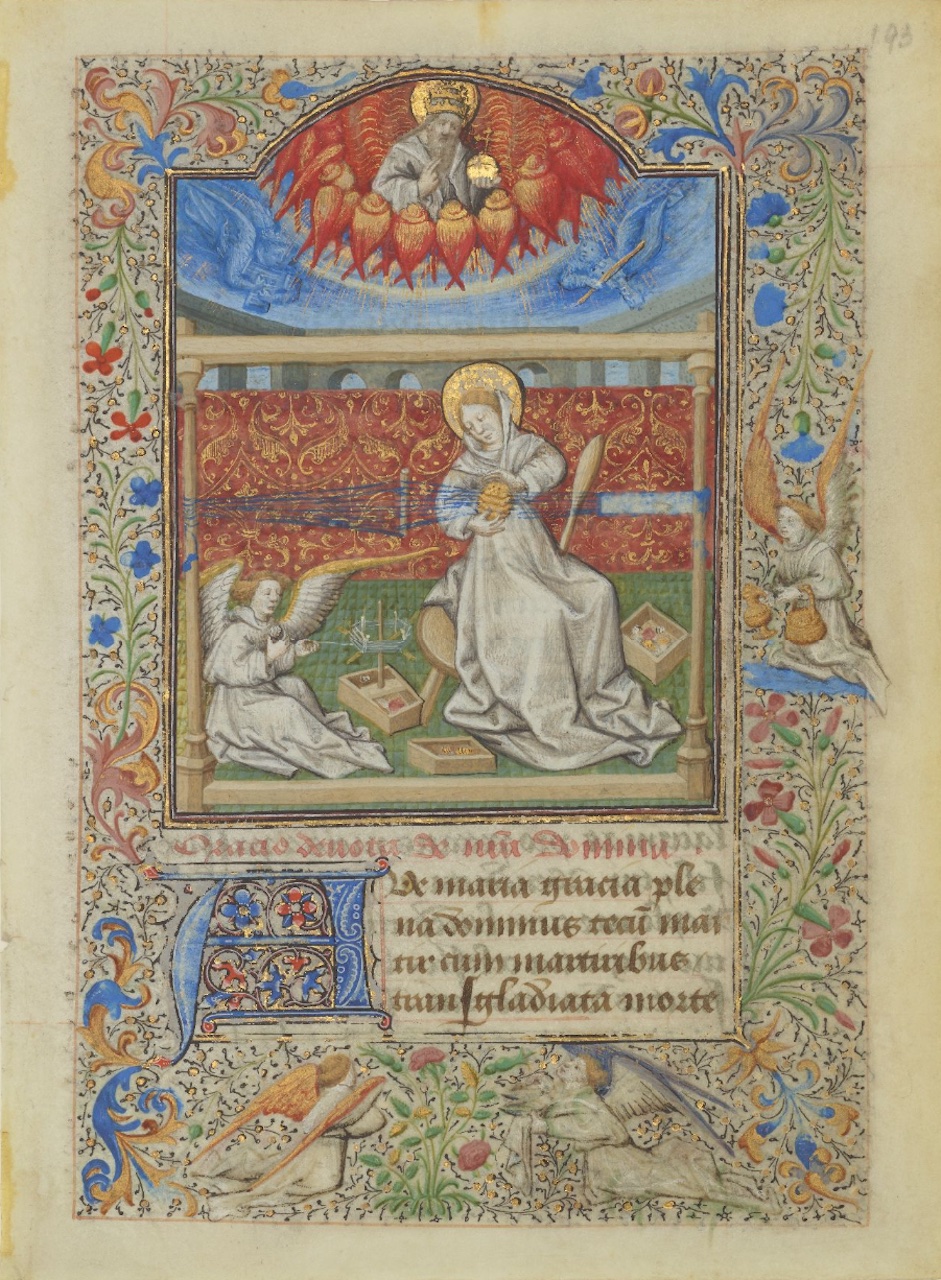 193
Oracio devota de n̄r̄a Domina
Ave maria gracia ple
na dominus tecū mar
tir cum martiribus
transgladiata morte